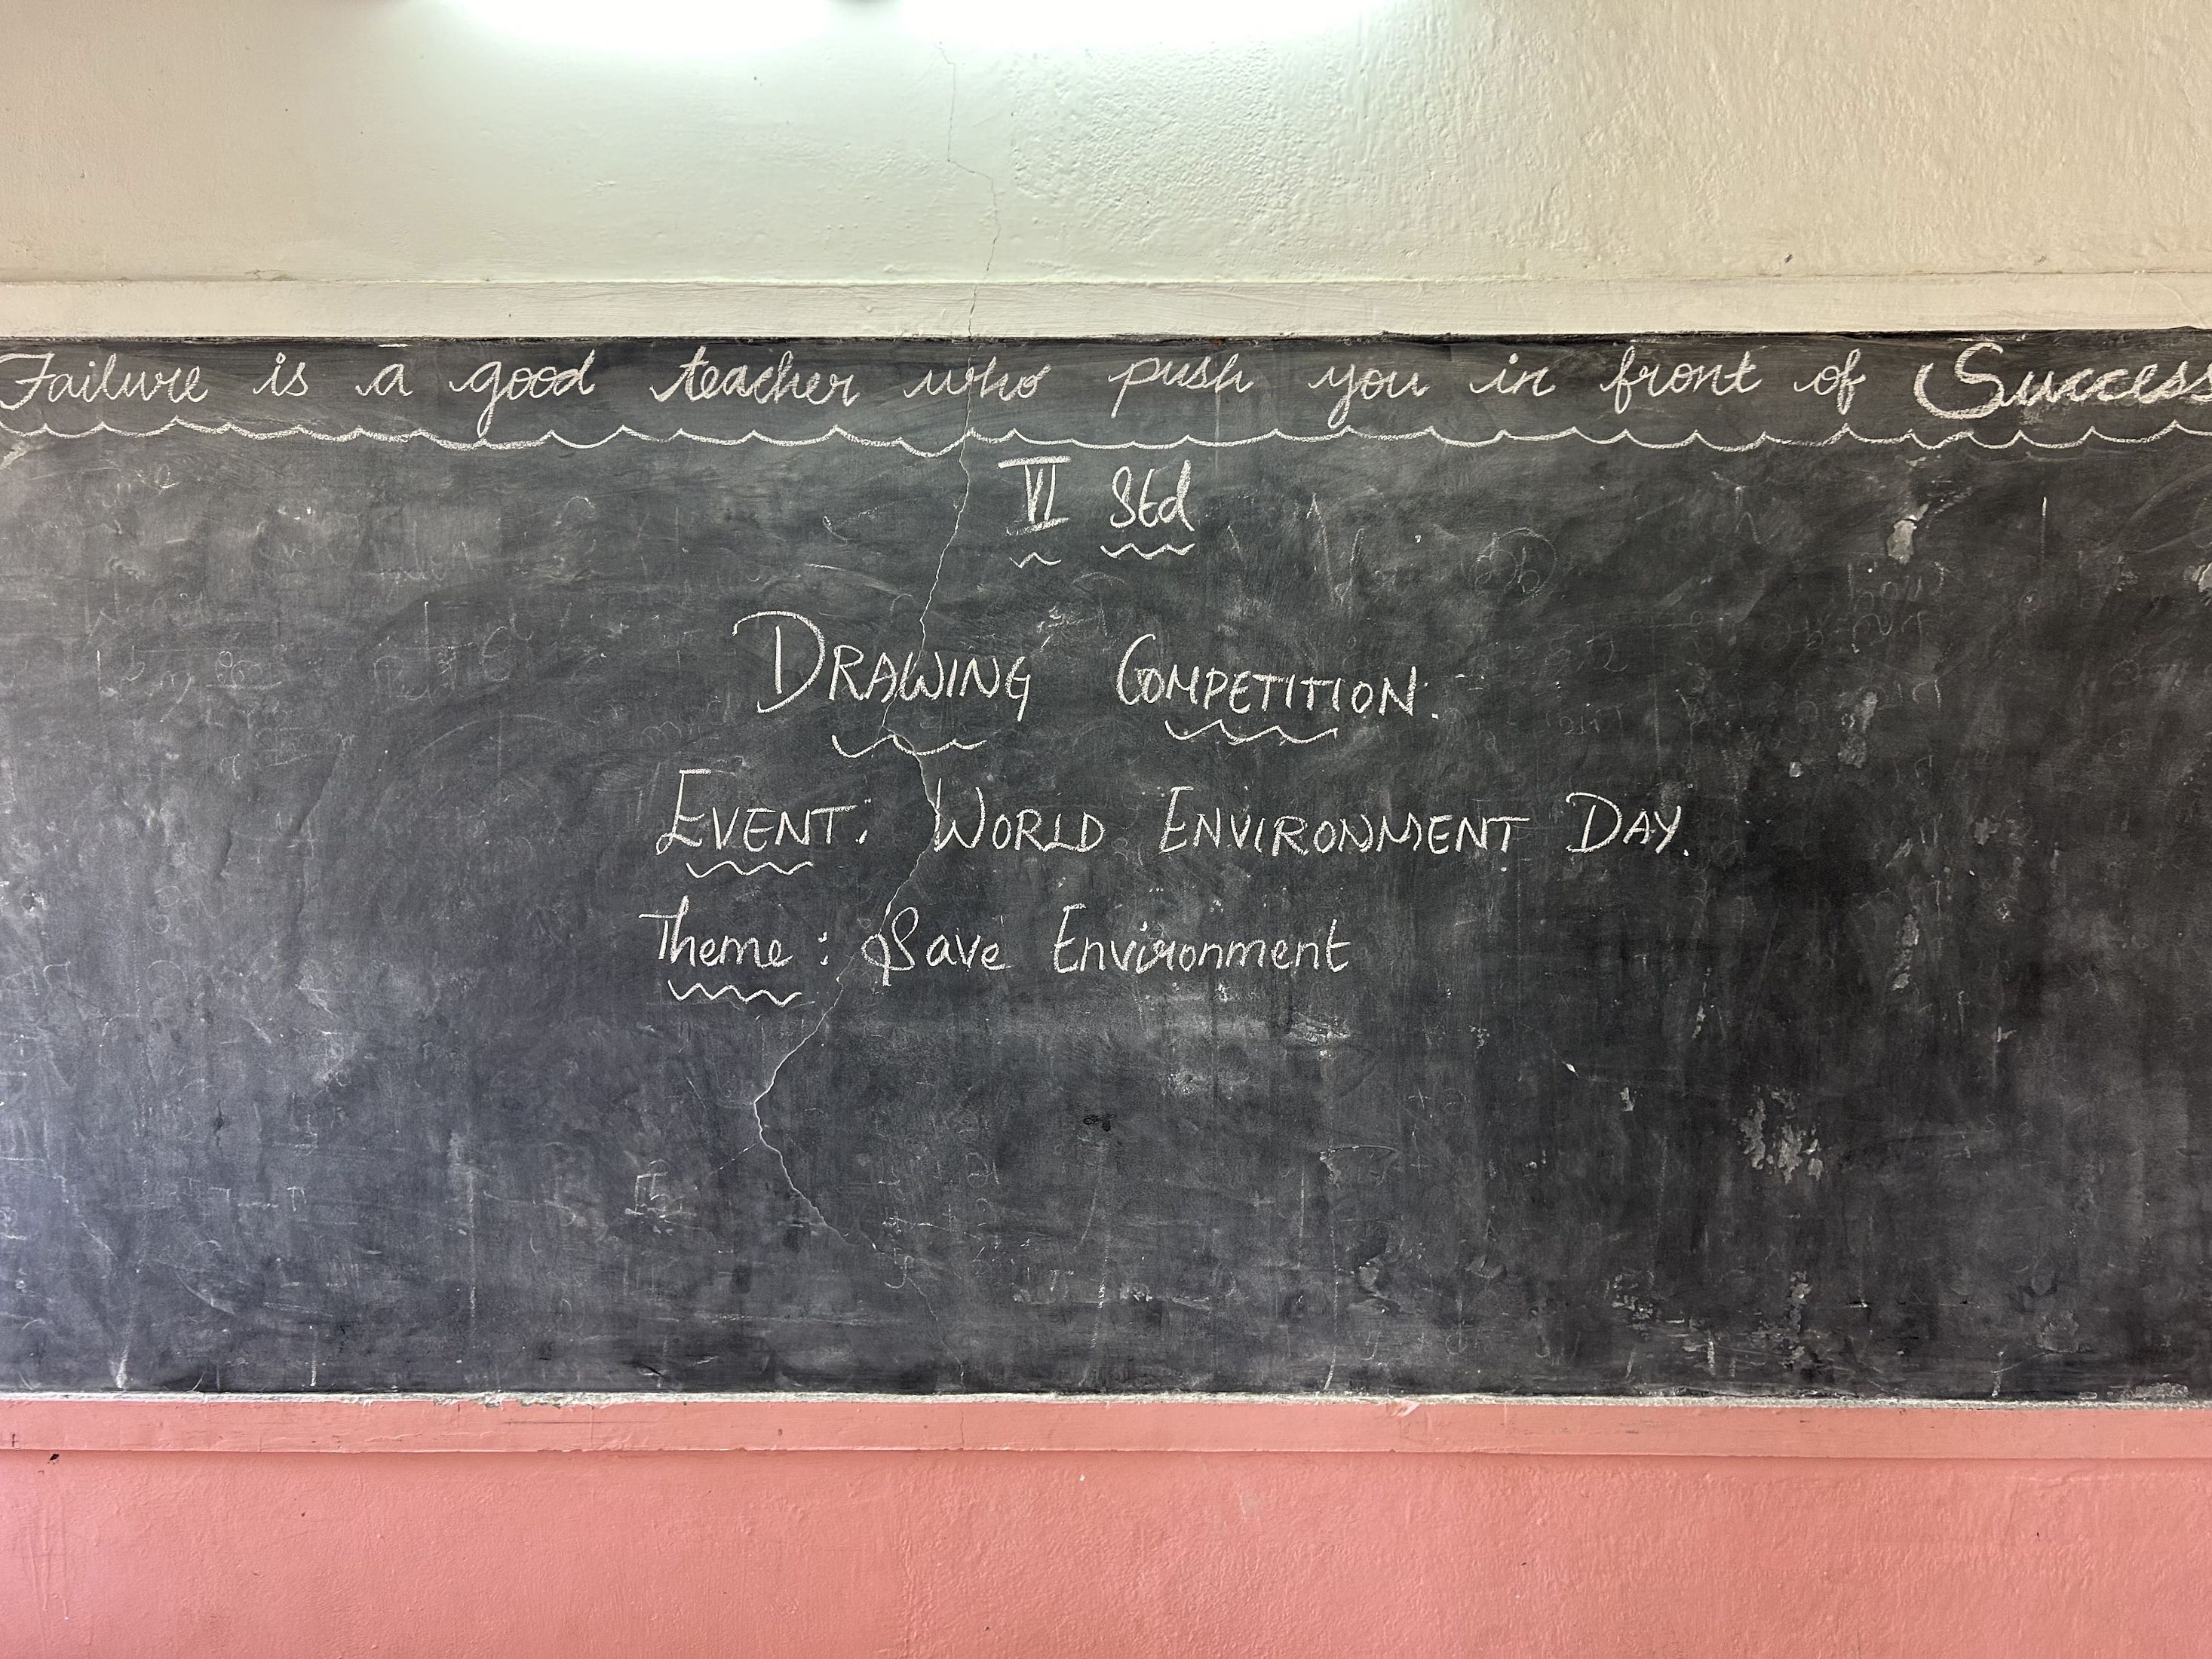 Failure is a good teacher who push you in front of Success
VI Std
DRAWING COMPETITION.
EVENT: WORLD ENVIRONMENT DAY.
Theme : Save Environment